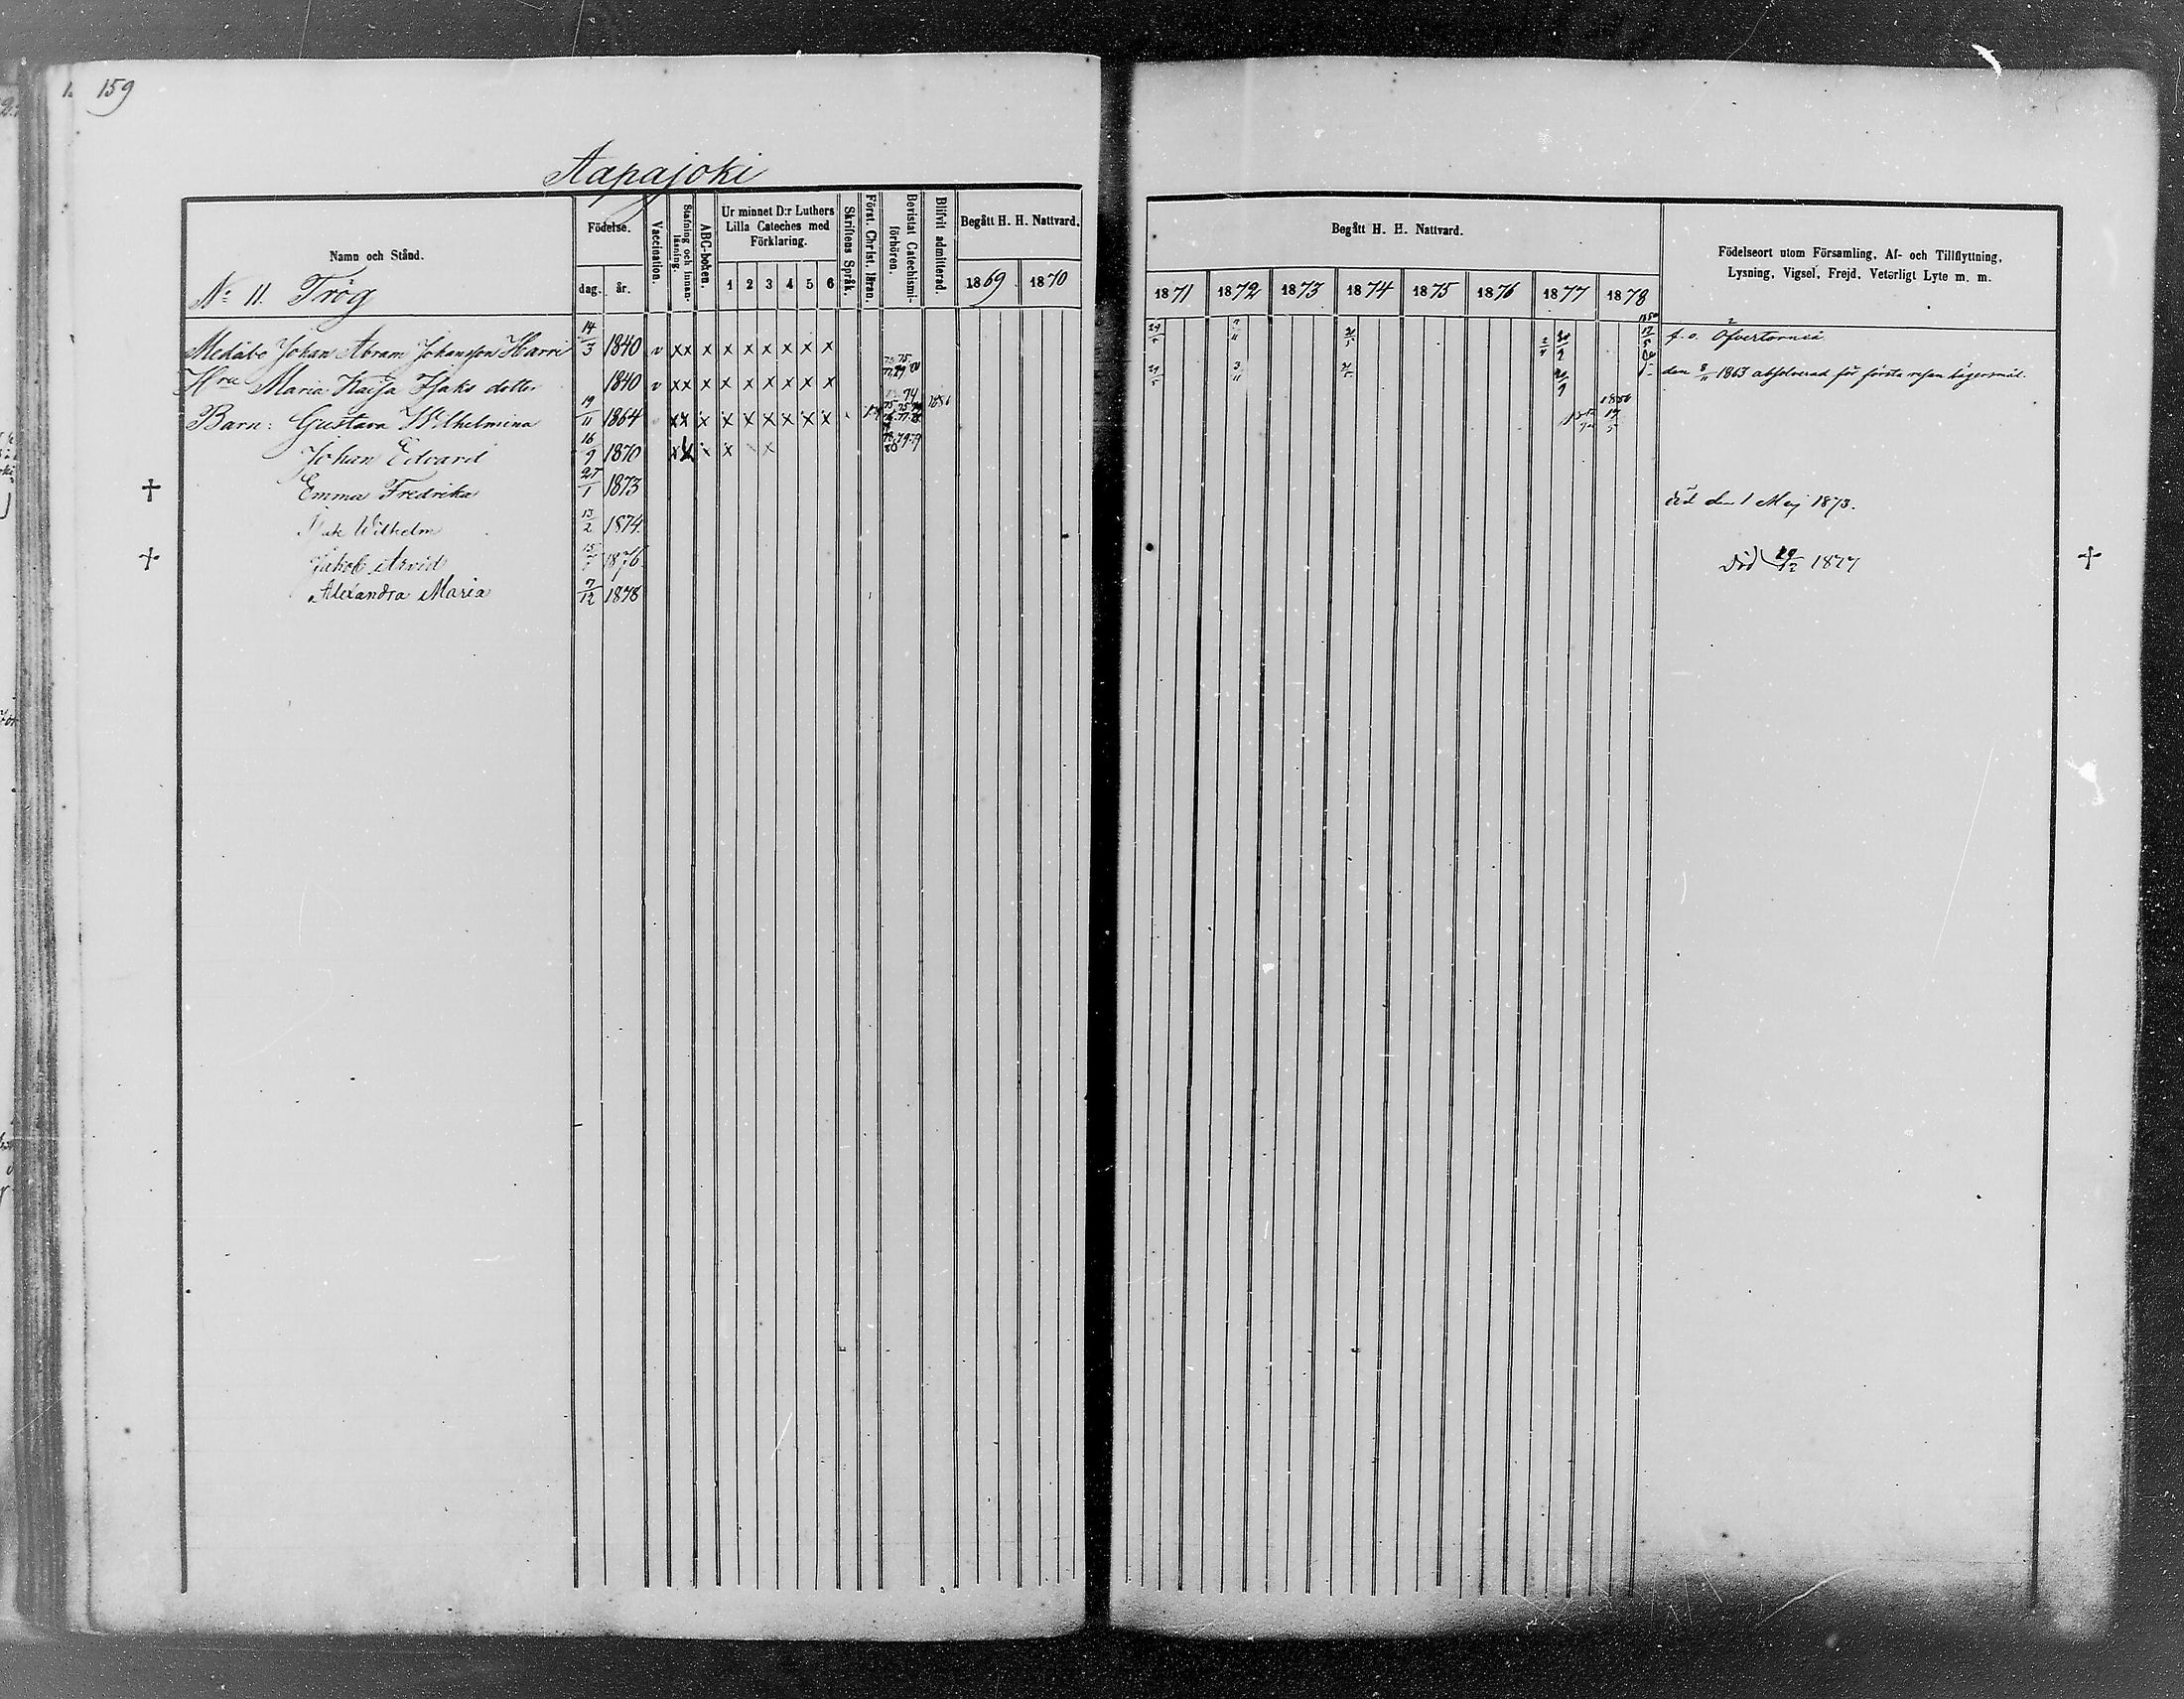 159
Aapajoki
Namn och Stånd.
Födelse.
dag.
år.
Vaccination.
Stafning och Innanläsning.
ABC-boken.
Ur minnet D:r Luthers
Lilla Cateches med
Förklaring.
1 2 3 4 5 6
Skriftens Språk.
Först. Christ. läran.
Bevistat Catechismi-
förhören.
Blifvit admitterad.
Begått H. H. Nattvard.
1869 1870
Begått H. H. Nattvard.
1871 1872 1873 1874 1875 1876 1877 1878
Födelseort utom Församling, Af- och Tillflyttning,
Lysning, Vigsel, Frejd, Veterligt Lyte m. m.
No 11. Trög
Medåbo Johan Abram Johansson Harri 14/3 1840 v xx x x x x x x x f. o. Öfvertorneå
Hru Maria Kajsa Isaks dotter 1840 v xx x x x x x x x den 8/11 1863 absolverad för första resan lägersmål.
Barn: Gustava Wilhelmina 19/11 1864 xx x x x x x x x
Johan Edvard 16/9 1870
† Emma Fredrika 27/1 1873 död den 1 Maj 1873.
Wilhelm 13/2 1874.
† Jakob Arvid 1876 död 1877 †
Alexandra Maria 7/12 1878